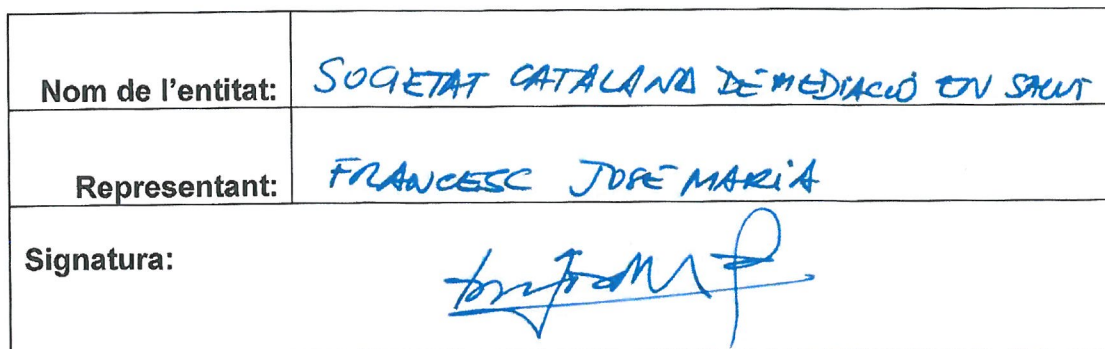 Nom de l'entitat: SOCIETAT CATALANA DE MEDIACIÓ EN SALUT
Representant: FRANCESC JOSÉ MARIA
Signatura: